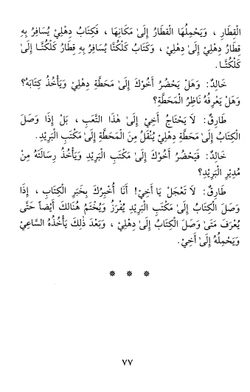 الْقِطَارِ ، وَيَحْمِلُهَا الْقِطَارُ إِلَىٰ مَكَانِهَا ، فَكِتَابُ دِهْلِيْ يُسَافِرُ بِهِ
قِطَارُ دِهْلِيْ إِلَىٰ دِهْلِيْ ، وَكَتَابُ كَلْكُتَّا يُسَافِرُ بِهِ قِطَارُ كَلْكُتَّا إِلَىٰ كَلْكُتَّا.
خَالِدٌ: وَهَلْ يَحْضُرُ أَخُوْكَ إِلَىٰ مَحَطَّةِ دِهْلِيْ وَيَأْخُذُ كِتَابَهُ؟
وَهَلْ يَعْرِفُهُ نَاظِرُ الْمَحَطَّةِ؟
طَارِقٌ: لَا يَحْتَاجُ أَخِيْ إِلَىٰ هٰذَا التَّعَبِ ، بَلْ إِذَا وَصَلَ
الْكِتَابُ إِلَىٰ مَحَطَّةِ دِهْلِيْ يُنْقَلُ مِنَ الْمَحَطَّةِ إِلَىٰ مَكْتَبِ الْبَرِيْدِ.
خَالِدٌ: فَيَحْضُرُ أَخُوْكَ إِلَىٰ مَكْتَبِ الْبَرِيْدِ وَيَأْخُذُ رِسَالَتَهُ مِنْ
مُدِيْرِ الْبَرِيْدِ؟
طَارِقٌ: لَا تَعْجَلْ يَا أَخِيْ! أَنَا أُخْبِرُكَ بِخَبَرِ الْكِتَابِ ، إِذَا
وَصَلَ الْكِتَابُ إِلَىٰ مَكْتَبِ الْبَرِيْدِ يُفْرَزُ وَيُخْتَمُ هُنَالِكَ أَيْضاً حَتَّىٰ
يُعْرَفَ مَتَىٰ وَصَلَ الْكِتَابُ إِلَىٰ دِهْلِيْ ، وَبَعْدَ ذٰلِكَ يَأْخُذُهُ السَّاعِيْ
وَيَحْمِلُهُ إِلَىٰ أَخِيْ.
* * *
٧٧